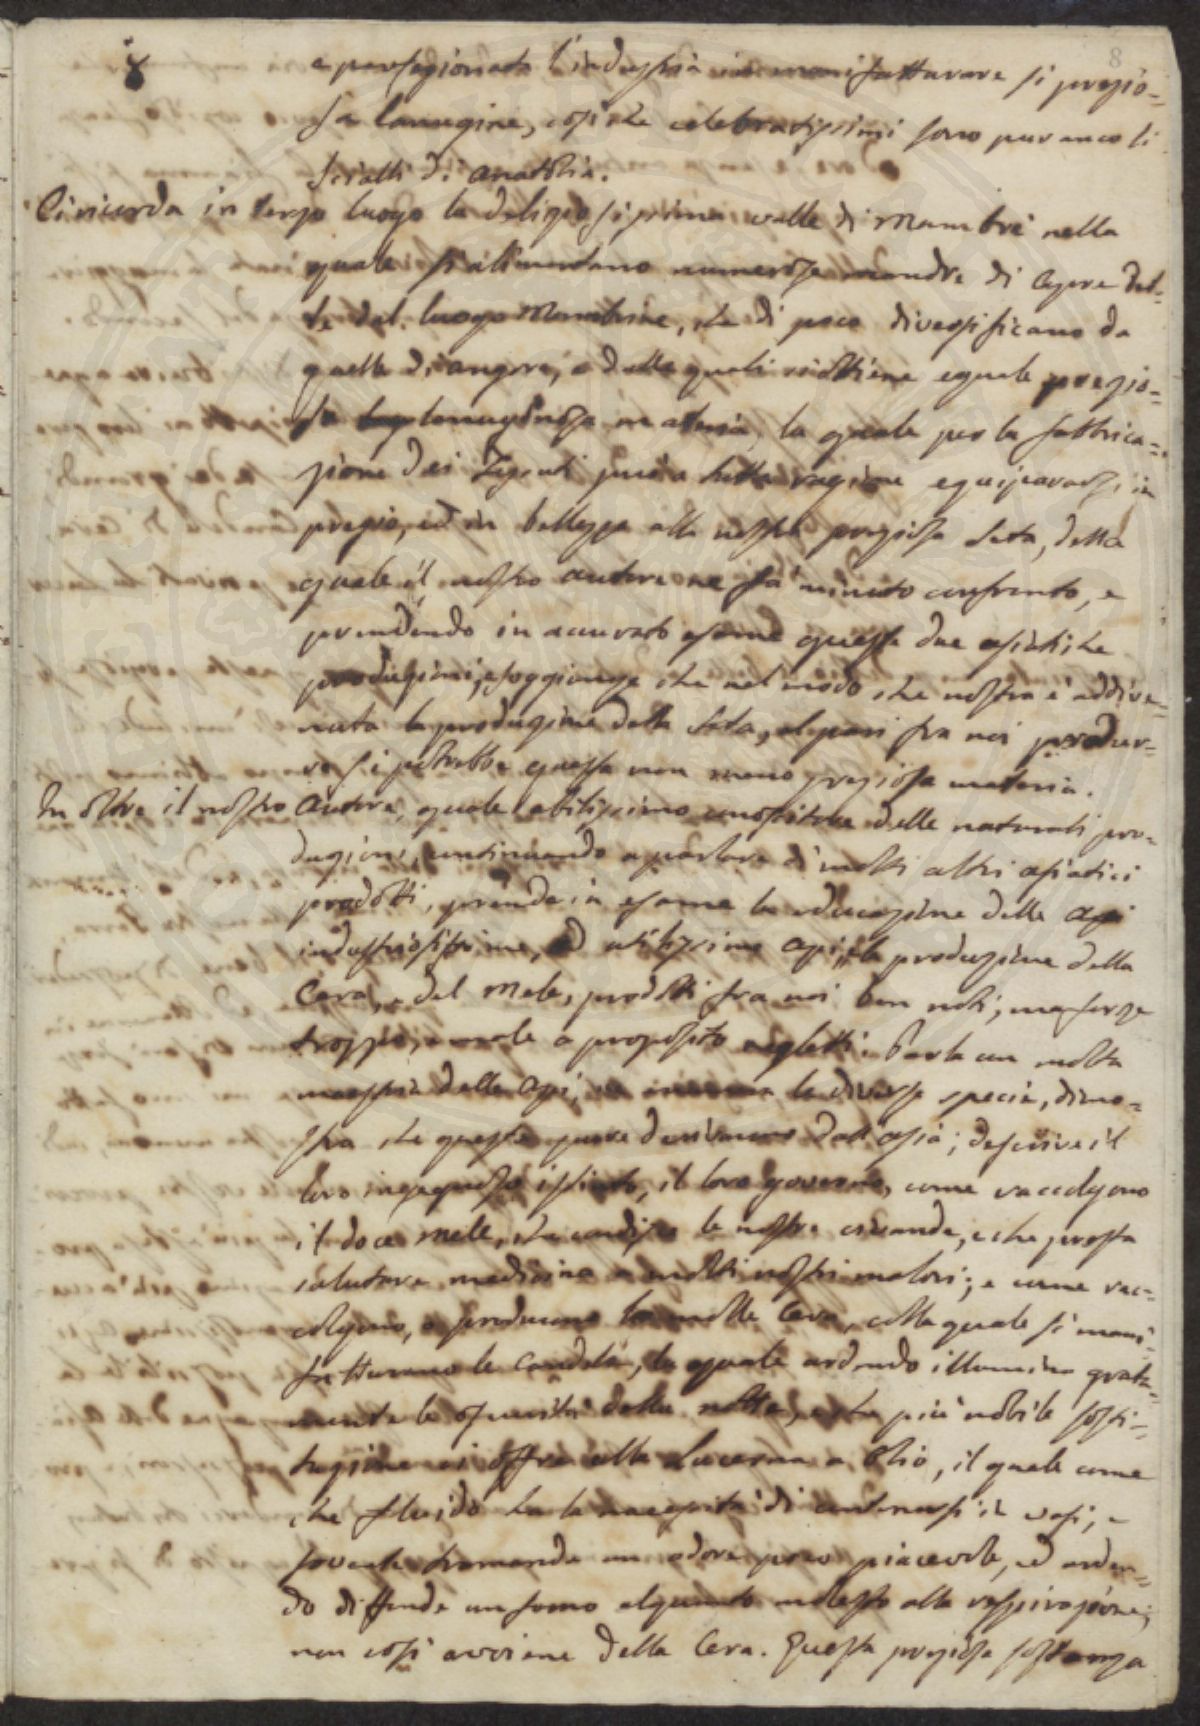 8
8
e perfezionata l'industria in manifatturare si prezio=
sa lanugine, così che celebratissimi sono pur anco li
scialli di Anatolia.
Ci ricorda in terzo luogo la deliziosissima valle di Mambrè nella
quale si alimentano numerose mandre di capre det=
te dal luogo Mambrine, che di poco diversificano da
quelle di angora, e dalle quali si ottiene eguale prezio=
sa lanuginosa materia, la quale per la fabbrica=
zione dei Tessuti può a tutta ragione equipararsi in
pregio, ed in bellezza alla nostra preziosa seta, della
quale il nostro autore ne fà minuto confronto, e
prendendo in accurato esame queste due asiatiche
produzioni, e soggiunge che nel modo che nostra è addive=
nuta la produzione della seta, al pari fra noi produr=
re si potrebbe questa non meno preziosa materia.
In oltre il nostro Autore, quale abilissimo conoscitore delle naturali pro=
duzioni, continuando a parlare di molti altri asiatici
prodotti, prende in esame la educazione delle api
industriosissime, ed utilissime api, la produzione della
Cera, e del Mele, prodotti fra noi ben noti, ma forse
troppo, e male a proposito negletti. Parla con molta
maestria delle Api, ne la diverse specie, dimo=
stra che queste pure derivarono dall'asia; descrive il
loro ingegnoso istinto, il loro governo, come raccolgono
il doce mele, che condisce le nostre vivande, e che presta
salutare medicina a molti nostri malori; e come rac=
colgono, e producono la molle Cera, colla quale si mani=
fatturano le Candele, la quale ardendo illumina grata=
mente le oscurità della notte, e che più nobile sosti=
tuzione ci offre alla Lucerna a Olio, il quale come
che fluido ha la necessità di contenersi in vasi, e
sovente tramanda un odore poco piacevole, ed arden=
do diffende un fumo alquanto molesto alla respirazione;
non così avviene della Cera. Questa preziosa sostanza